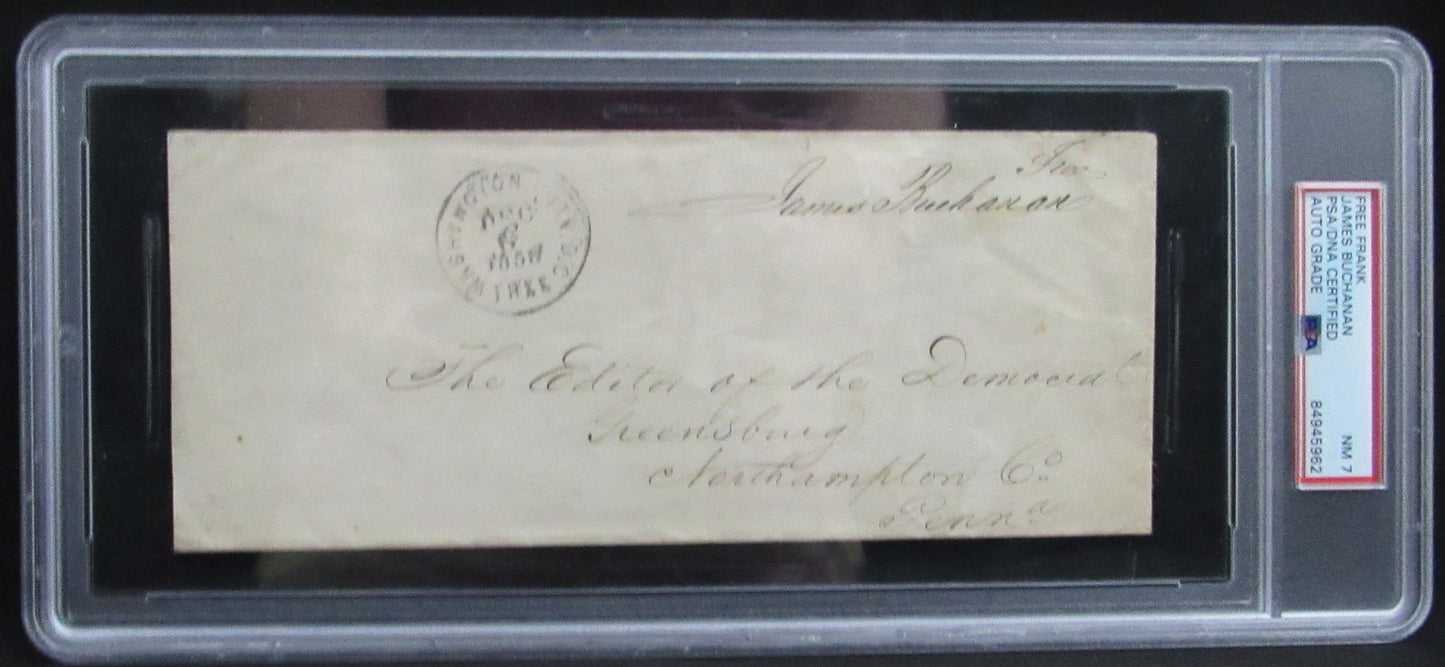 Free
James Buchanan
WASHINGTON CITY D.C.
DEC
6
1858
FREE
The Editor of the Democrat
Greensburg
Northampton Co.
Penna
FREE FRANK
JAMES BUCHANAN NM 7
PSA/DNA CERTIFIED
AUTO GRADE 84945962
PSA